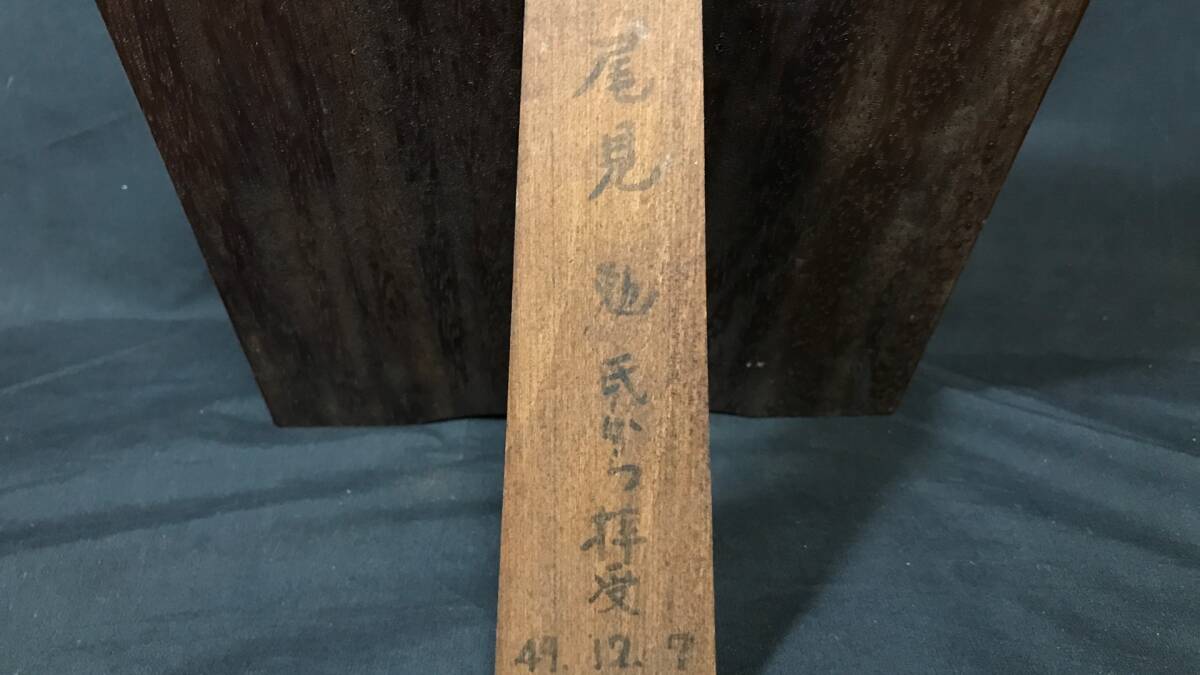 尾見 勉氏から拝受
49. 12. 7